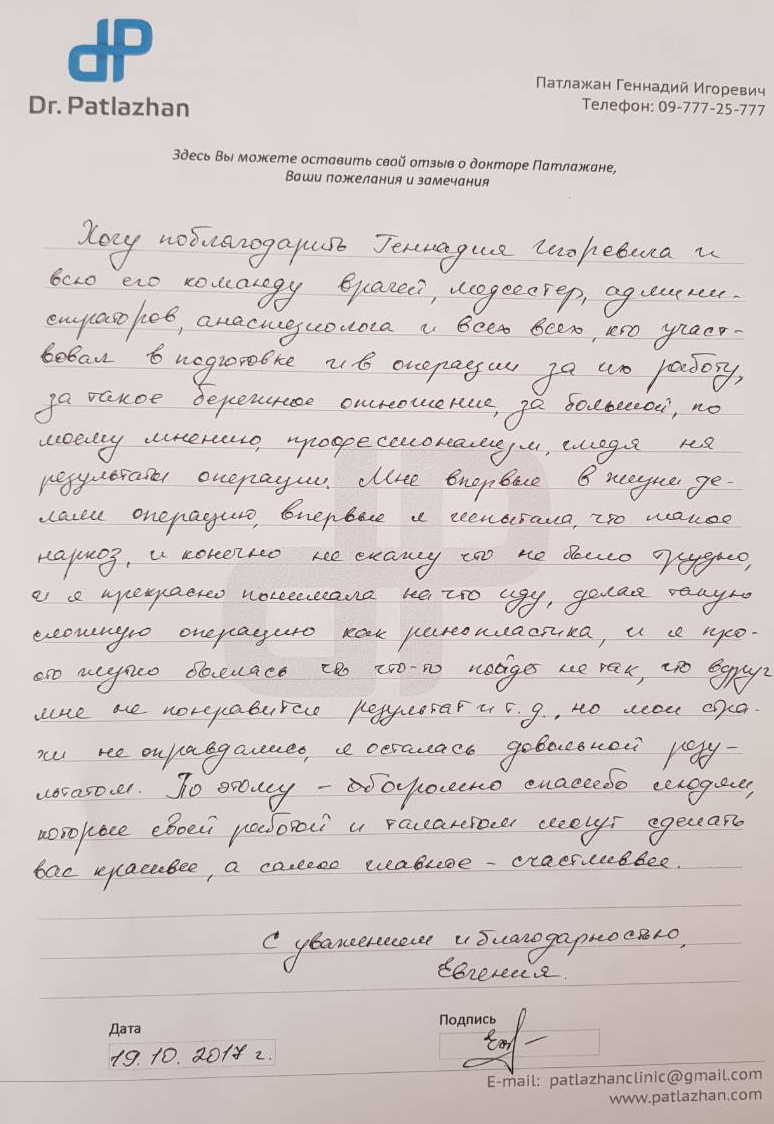 dp
Dr. Patlazhan
Патлажан Геннадий Игоревич
Телефон: 09-777-25-777
Здесь Вы можете оставить свой отзыв о докторе Патлажане,
Ваши пожелания и замечания
Хогу поблагодарить Геннадия Игоревича и
всю его команду врачей, медсестер, админи-
страторов, анастезиолога и всех всех, кто участ-
вовал в подготовке и в операции за их работу,
за такое бережное отношение, за большой, по
моему мнению, профессионализм, глядя на
результаты операции. Мне впервые в жизни де-
лали операцию, впервые я испытала, что такое
наркоз, и конечно не скажу что не было трудно,
и я прекрасно понимала на что иду, делая такую
сложную операцию как ринопластика, и я про-
сто жутко боялась что что-то пойдет не так, что вдруг
мне не понравится результат и т. д., но мои стра-
хи не оправдались, я осталась довольной резу-
льтатом. По этому - обогромно спасибо людям,
которые своей работой и талантом могут сделать
вас красивее, а самое главное - счастливвее.
С уважением и благодарностью,
Евгения.
Дата
Подпись
19.10.2017 г.
E-mail: patlazhanclinic@gmail.com
www.patlazhan.com